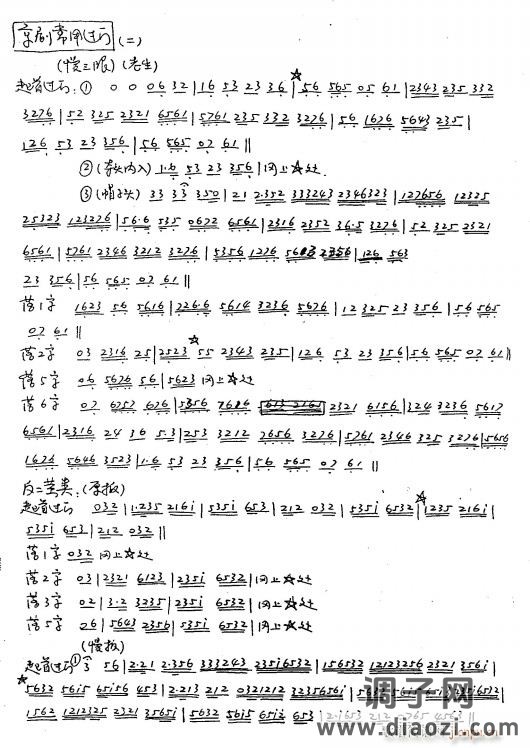 京剧常用过门(二)
(慢三眼)(老生)
起首过门:① 0 0 06 32 | 16 53 23 36 | ☆56 565 05 61 | 2343 235 332
3276 | 52 325 2321 6561 | 5761 235 332 3276 | 56 1626 5643 235 |
126 53 23 356 | 56 565 07 61 ‖
②(夺头内入) 1·6 53 23 356 | 同上☆处
③(帽子头) 33 33 350 | 21 2·352 333243 2346323 | 127656 12325
25323 123276 | 56·6 535 0672 6561 | 2316 2352 36·5 3276 | 52 325 2321
6561 | 5761 2346 3212 3276 | 5356 1276 56 2356 | 126 563
23 356 | 56 565 07 61 ‖
落1字 1623 56 5616 | 7266 5614 3236 5676 | 12 325 23 356 | 56 565
07 61 ‖
落2字 03 2316 25 | 2523 ☆55 2343 235 | 126 53 23 356 | 56 565 07 61 ‖
落5字 06 5676 56 | 5623 同上☆处
落6字 07 6757 676 | 5356 7686 2321 6156 | 324 3236 5617
6561 | 2316 24 36 5·3 | 253 3212 7656 3276 | 5761 2346 325 3276 | 5656
1676 5646 3523 | 1·6 53 23 356 | 56 565 07 61 ‖
反二黄类:(原板)
起首过门 032 | 1·235 216i | 535i 653 | 212 032 | 535i 6532 | ☆1235 216i |
535i 653 | 212 032 ‖
落1字 032 同上☆处
落2字 03 | 2321 6123 | 235i 6532 | 同上☆处
落3字 02 | 3·2 3235 | 235i 6532 | 同上☆处
落5字 26 | 5643 2356 | 535i 6532 | 同上☆处
(慢板)
起首过门① 3 56 | 2·21 2·356 333243 235i6532 | 156532 12123256 2321 356i |
☆5632 5615 6156 453 | 2·213 212 0321212 32356561 |
1562 1212325 235i 6535i | 5632 5615 6512 653
调子网
www.diaozi.com